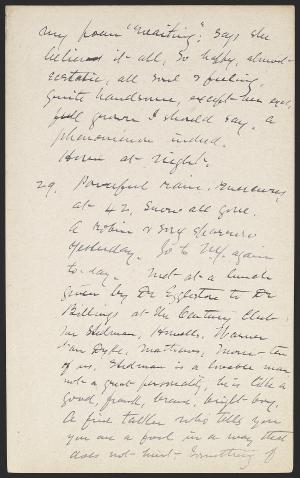 my poem "Waiting"; says she
believes it all, so happy, almost
ecstatic, all soul & feeling,
quite handsome, except her eyes,
full grown I should say. a
phenomenon indeed.
Home at night.
29. Powerful rain, mercury
at 42, snow all gone.
a Robin & song sparrow
yesterday. Go to N.Y. again
to-day. Met at a lunch
given by Dr Eggleston to Dr
Billings at the Century Club.
Stedman, Howells, Warner
Van Dyke, Mathews, ten
of us. Stedman is a lovable man
not a great personality, he is like a
good, frank, brave, bright boy.
A fine talker who tells you
you are a fool in a way that
does not hurt. Something of